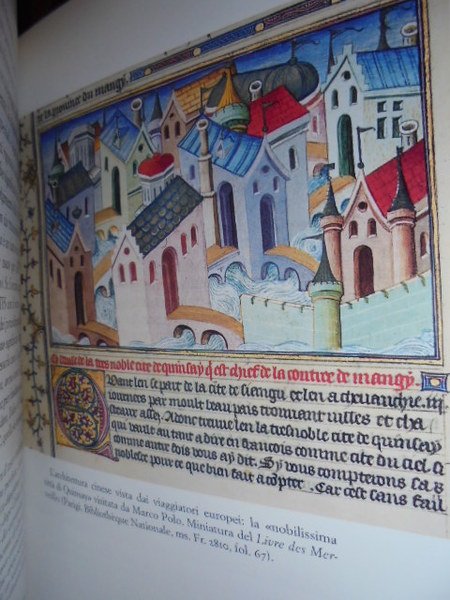 de la contree du mangy.
Cy dit de la tres noble cite de quinsay q est chief de la contree de mangy.
Quant len se part de la cite de siengu et len a cheuauchie .iii.
iournees par moult beau pais trouuant villes et cha
steaux assez. Adonc treuue len la tresnoble cite de quinsay
qui vault au tant a dire en francois comme cite du ciel si
comme autre fois vous ay dit. Si vous compterons sa
noblesce pour ce que bien fait a compter. Car cest sans fail
L'architettura cinese vista dai viaggiatori europei: la «nobilissima
città di Quinsay» visitata da Marco Polo. Miniatura del Livre des Mer-
veilles (Parigi, Bibliothèque Nationale, ms. Fr. 2810, fol. 67).